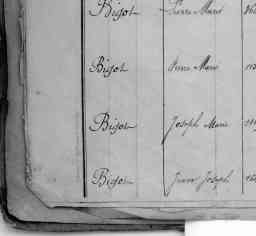 Bigot Pierre Marie
Bigot Anne Marie
Bigot Joseph Marie
Bigot Joseph